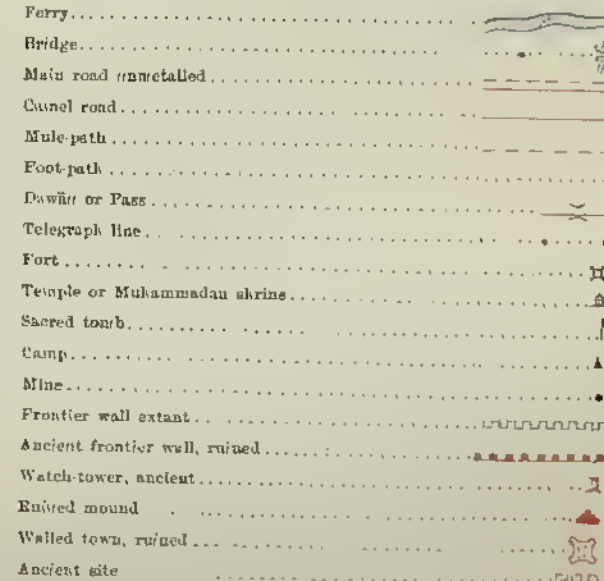 Ferry
Bridge
Main road unmetalled
Camel road
Mule-path
Foot-path
Dawān or Pass
Telegraph line
Fort
Temple or Muhammadan shrine
Sacred tomb
Camp
Mine
Frontier wall extant
Ancient frontier wall, ruined
Watch-tower, ancient
Ruined mound
Walled town, ruined
Ancient site